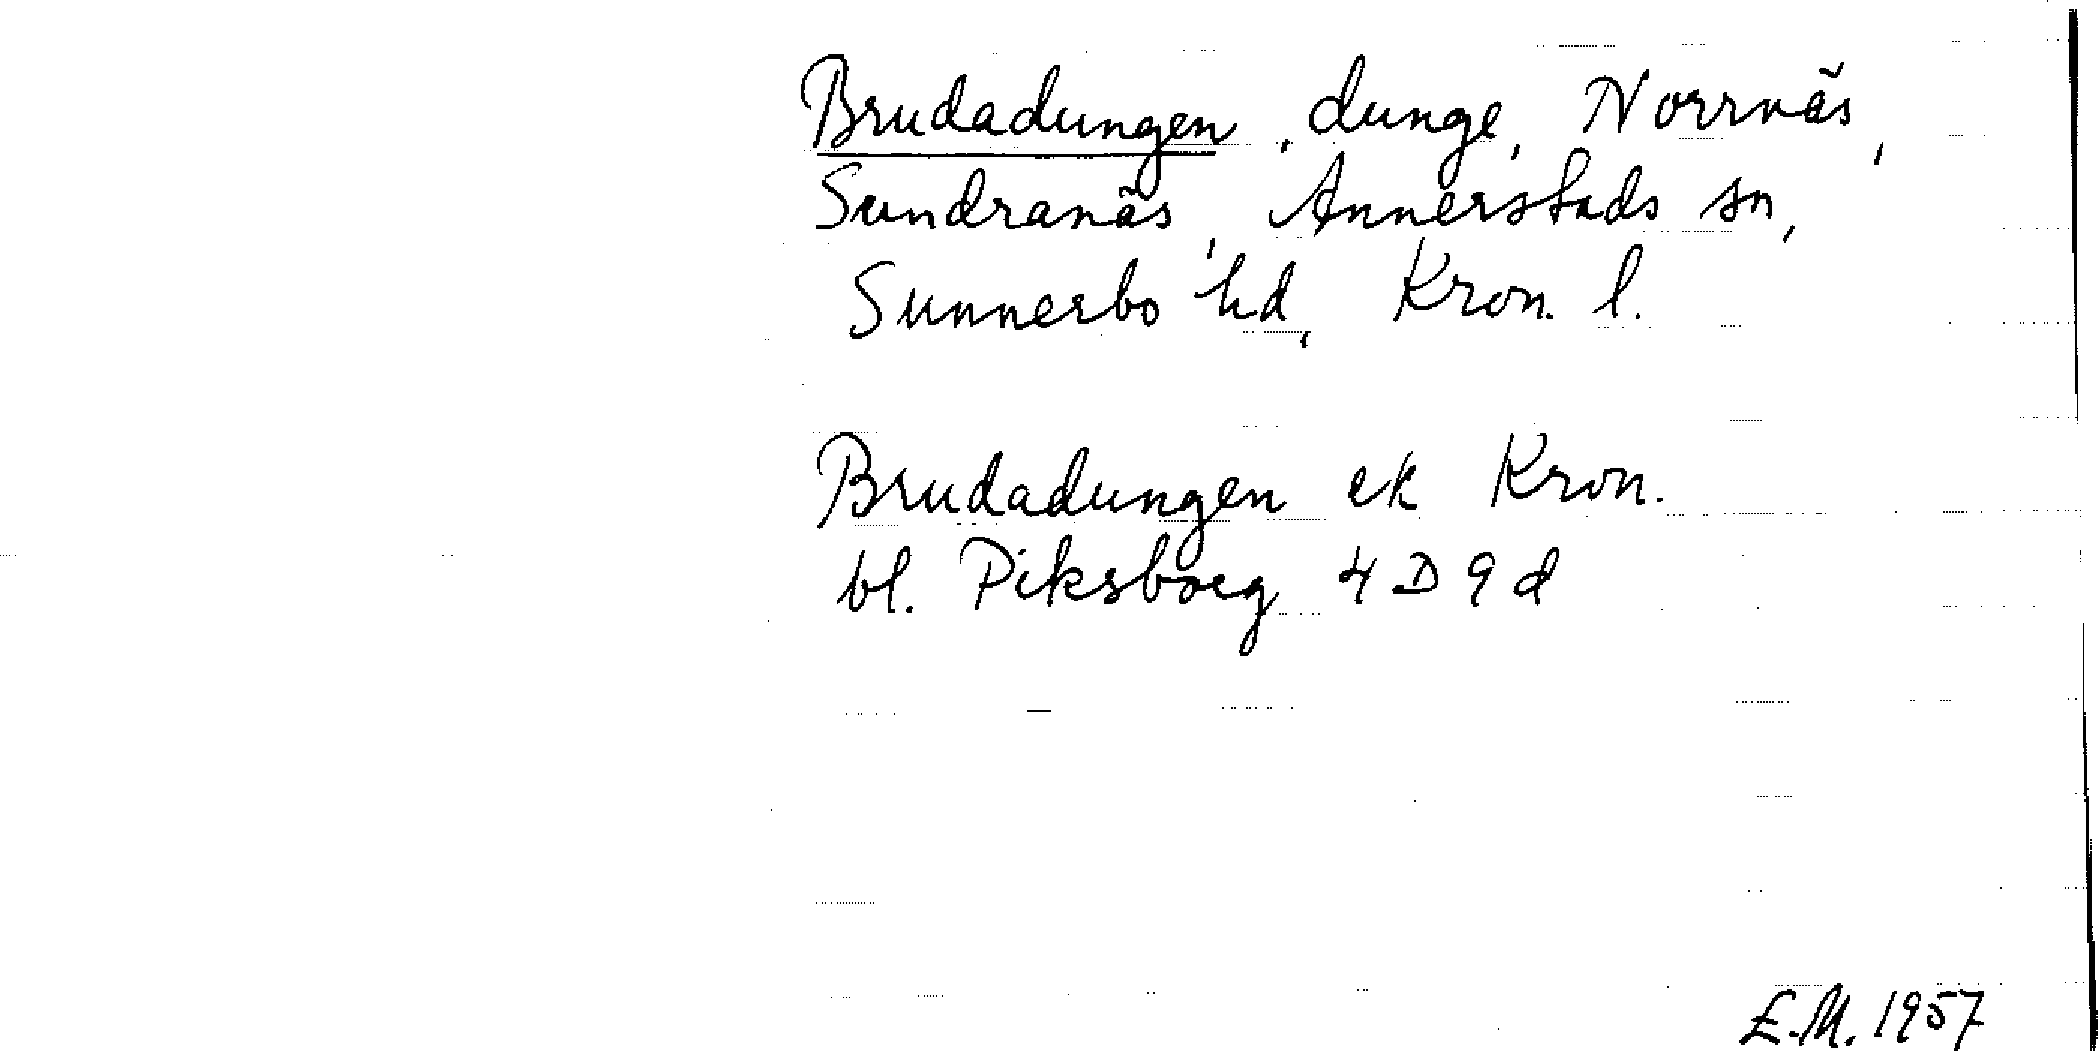 Brudadungen, dunge, Norrnäs,
Sundranäs, Annerstads sn,
Sunnerbo hd, Kron. l.
Brudadungen ek Kron.
bl. Piksborg 4D9d
E.M. 1957